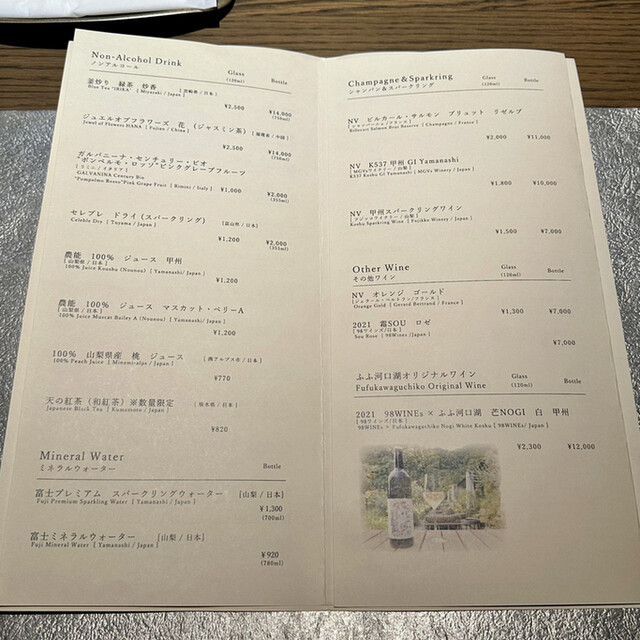 Non-Alcohol Drink
ノンアルコール
Glass
(120ml)
Bottle
釜炒り 緑茶 妙香 [宮崎県 / 日本]
Blue Tea "IRIKA" [ Miyazaki / Japan ]
¥2,500 ¥14,000
(750ml)
ジュエルオブフラワーズ 花 (ジャスミン系) [福建省 / 中国]
Jewel of Flowers HANA [ Fujian / China ]
¥2,500 ¥14,000
(750ml)
ガルバニーナ・センチュリー・ビオ
"ポンペルモ・ロッソ"ピンクグレープフルーツ
[リミニ / イタリア]
GALVANINA Century Bio
"Pompelmo Rosso"Pink Grape Fruit [ Rimini / Italy ] ¥1,000 ¥2,000
(355ml)
セレブレ ドライ (スパークリング) [富山県 / 日本]
Celeble Dry [ Toyama / Japan ]
¥1,200 ¥2,000
(355ml)
農能 100% ジュース 甲州
[山梨県 / 日本]
100% Juice Koushu (Nounou) [ Yamanashi/ Japan ]
¥1,200
農能 100% ジュース マスカット・ベリーA
[山梨県 / 日本]
100% Juice Moscat Bailey A (Nounou) [ Yamanashi/ Japan ]
¥1,200
100% 山梨県産 桃 ジュース [南アルプス市 / 日本]
100% Peach Juice [ Minami-alps / Japan ]
¥770
天の紅茶 (和紅茶) ※数量限定 [熊本県 / 日本]
Japanese Black Tea [ Kumamoto / Japan ]
¥820
Mineral Water
ミネラルウォーター
Bottle
富士プレミアム スパークリングウォーター [山梨 / 日本]
Fuji Premium Sparkling Water [ Yamanashi / Japan ]
¥1,300
(700ml)
富士ミネラルウォーター [山梨 / 日本]
Fuji Mineral Water [ Yamanashi / Japan ]
¥920
(780ml)
Champagne&Sparkring
シャンパン&スパークリング
Glass
(120ml)
Bottle
NV ビルカール・サルモン ブリュット リゼルブ
[シャンパーニュ / フランス]
Billecart Salmon Brut Reserve [ Champagne / France ]
¥2,000 ¥11,000
NV K537 甲州 GI Yamanashi
[MGVsワイナリー / 山梨]
K537 Koshu GI Yamanashi [ MGVs Winery / Japan ]
¥1,800 ¥10,000
NV 甲州スパークリングワイン
[フジッコワイナリー / 山梨]
Koshu Sparkring Wine [ Fujikko Winery / Japan ]
¥1,500 ¥7,000
Other Wine
その他ワイン
Glass
(120ml)
Bottle
NV オレンジ ゴールド
[ジェラール・ベルトラン / フランス]
Orange Gold [ Gerard Bertrand / France ]
¥1,300 ¥7,000
2021 霜SOU ロゼ
[ 98ワインズ / 日本 ]
Sou Rose [ 98Wines / Japan ]
¥7,000
ふふ河口湖オリジナルワイン
Fufukawaguchiko Original Wine
Glass
(120ml)
Bottle
2021 98WINEs × ふふ河口湖 芒NOGI 白 甲州
[ 98ワインズ/日本 ]
98WINEs × Fufukawaguchiko Nogi White Koshu [ 98WINEs/ Japan ]
¥2,300 ¥12,000